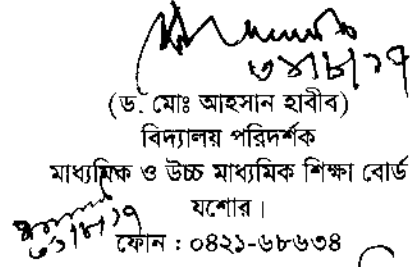 ৩১/৮/১৭
(ড. মোঃ আহসান হাবীব)
বিদ্যালয় পরিদর্শক
মাধ্যমিক ও উচ্চ মাধ্যমিক শিক্ষা বোর্ড
যশোর।
৩১/৮/১৭
ফোন : ০৪২১-৬৮৬৩৪